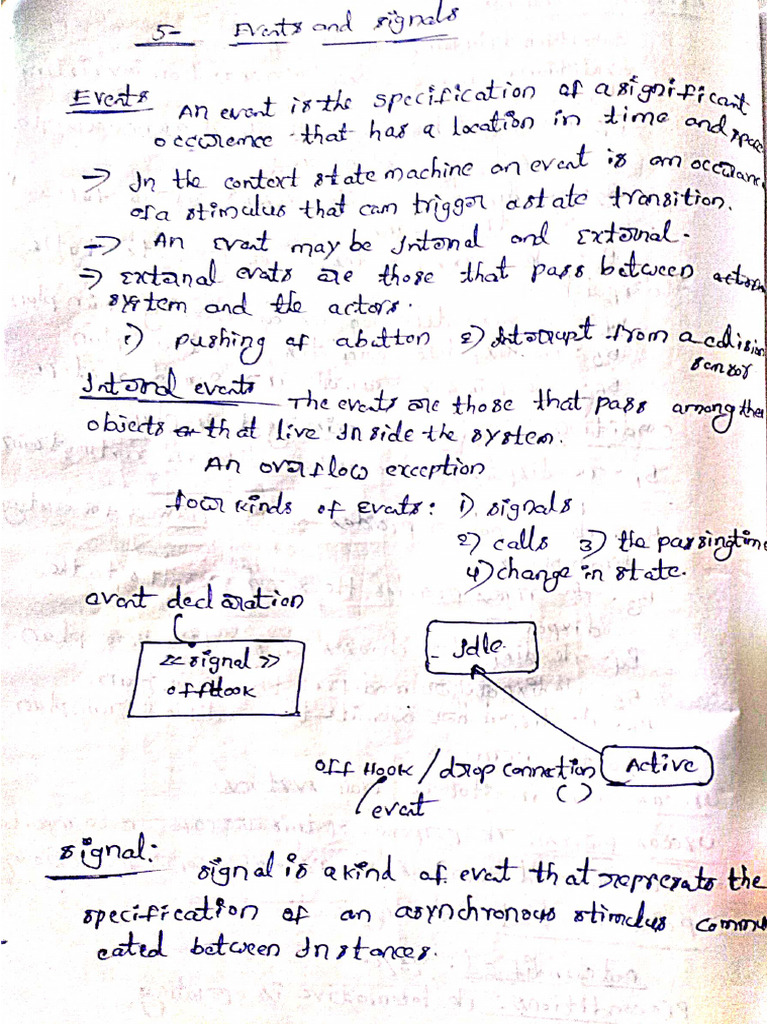 5- Events and signals
Events An event is the specification of a significant
occurence that has a location in time and space
-> In the context state machine an event is an occurance
of a stimulus that can trigger a state transition.
-> An event may be Internal and External.
-> External evats are those that pass between
system and the actors.
1) pushing of a button 2) Interrupt from a collision
sensor
Internal events The events are those that pass among the
objects that live Inside the system.
An overflow exception
four kinds of Events: 1) signals
2) calls 3) the passing time
4) change in state.
event declaration
<< signal >>
offHook
Idle
Active
off Hook / drop connection
( )
event
signal:
signal is a kind of event that represents the
specification of an asynchronous stimulus commu
cated between Instances.